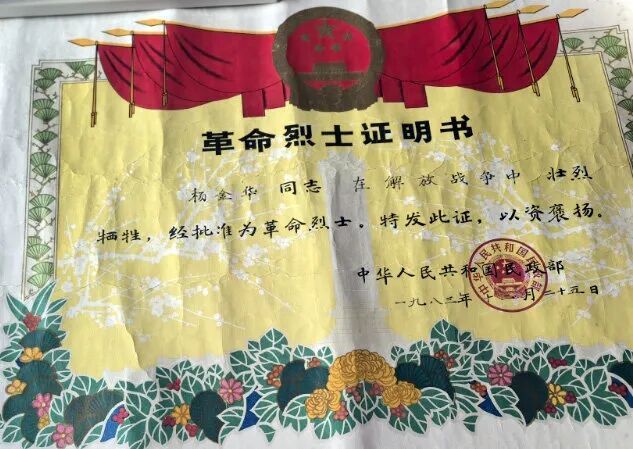 革命烈士证明书
杨金华 同志 在解放战争中 壮烈
牺牲，经批准为革命烈士。特发此证，以资褒扬。
中华人民共和国民政部
一九八三年 月二十五日
中华人民共和国民政部